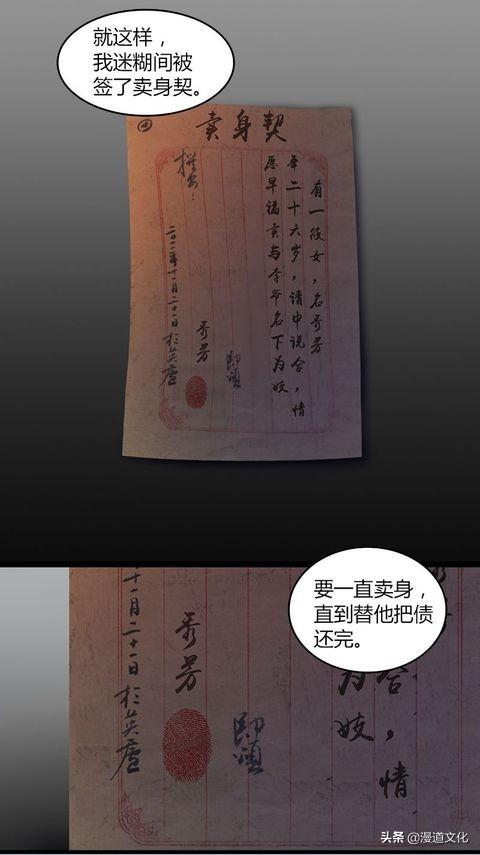 就这样，
我迷糊间被
签了卖身契。
卖身契
有一彼女，名秀芳
年二十六岁，请中说合，情
愿早福卖与李爷名下为妓
秀芳
二〇二年十一月二十一日 于英庐
要一直卖身，
直到替他把债
还完。
合，情
为妓
秀芳
十一月二十一日 于英庐
头条 @漫道文化